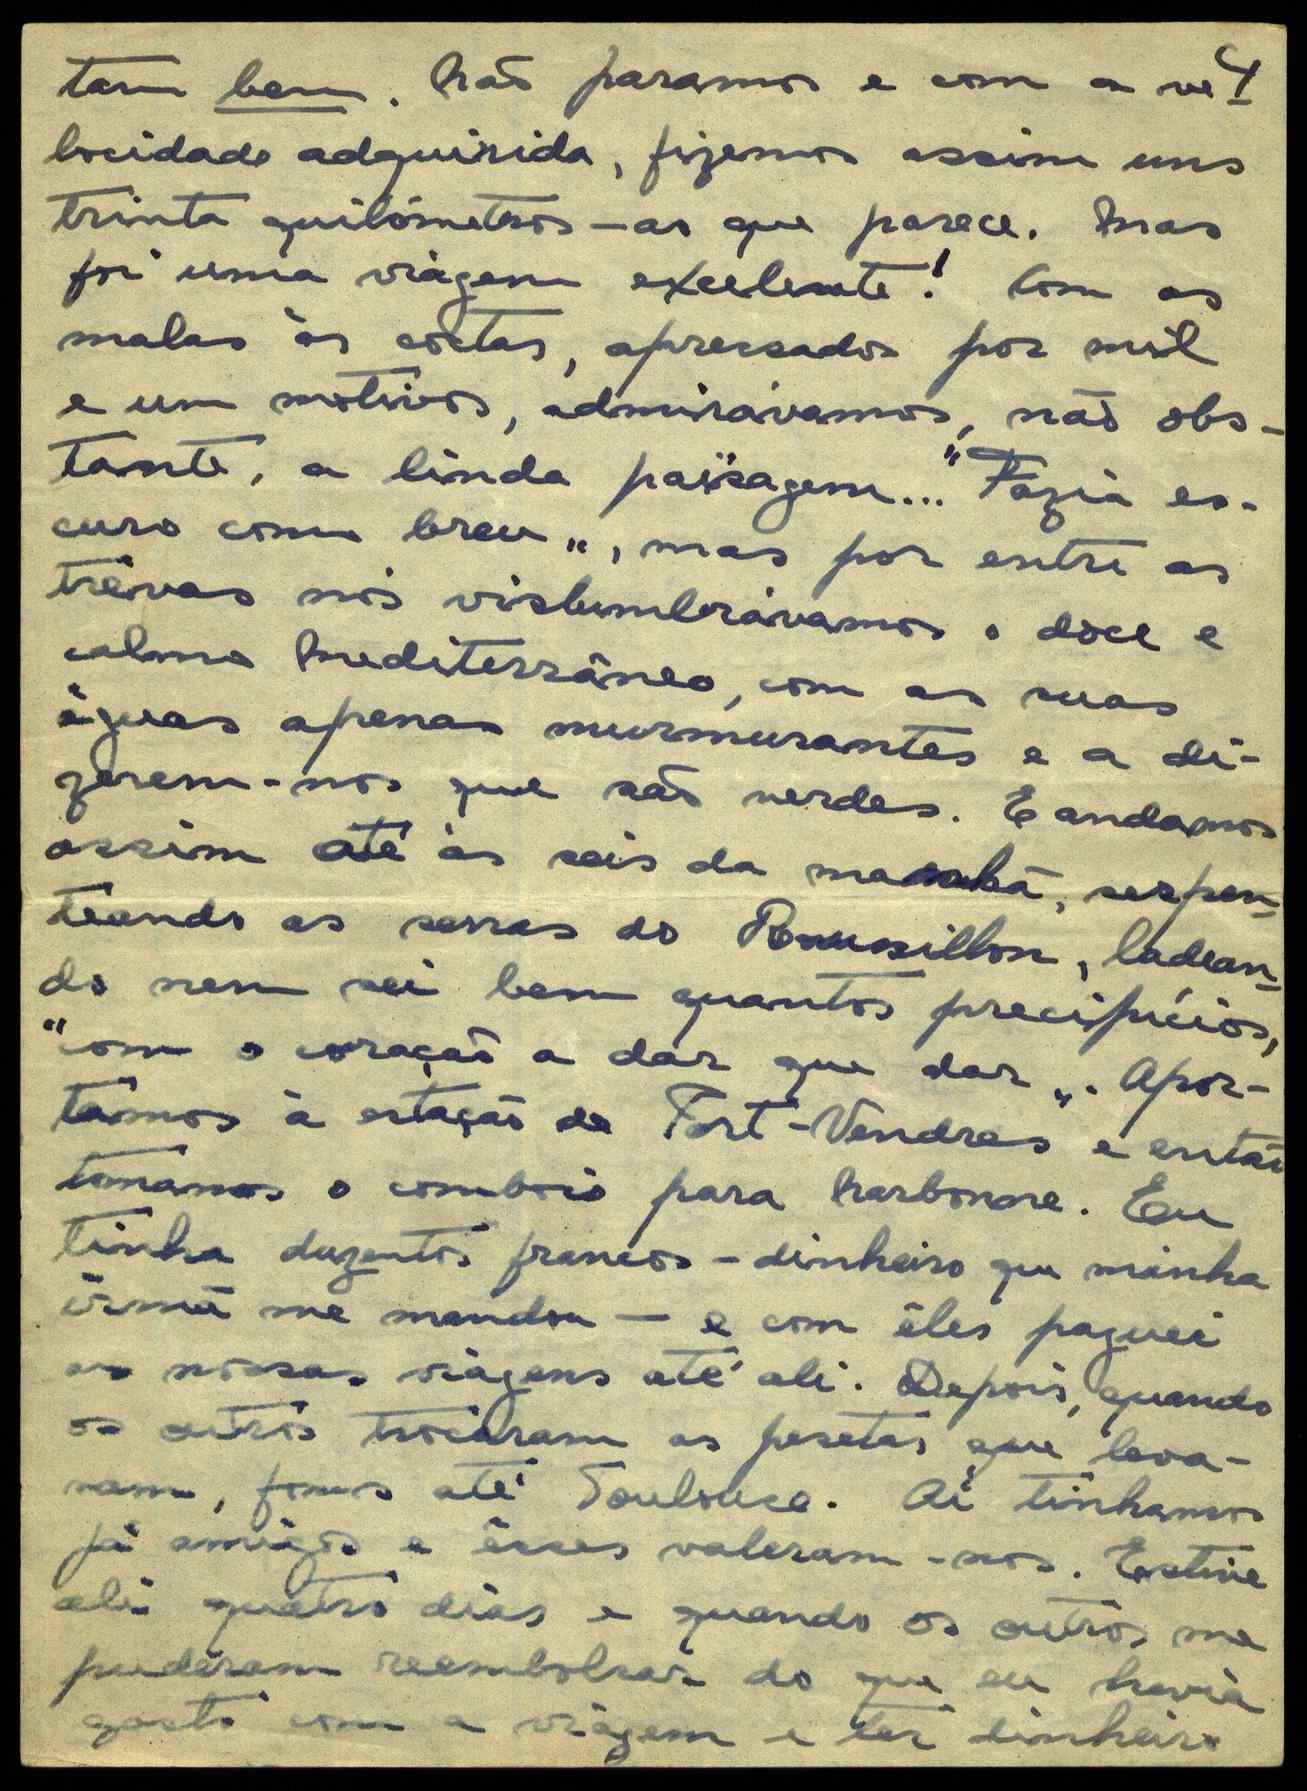 4
tam bem. Não paramos e com a ve-
locidade adquirida, fizemos assim uns
trinta quilómetros - ao que parece. Mas
foi uma viagem excelente! Com as
malas às costas, apressados por mil
e um motivos, admirávamos, não obs-
tante, a linda païsagem... "Fazia es-
curo como breu", mas por entre as
trévas nós vislumbrávamos o doce e
calmo Mediterrâneo, com as suas
águas apenas murmurantes e a di-
zerem-nos que são verdes. E andamos
assim até às seis da manhã, serpen-
teando as serras do Roussillon, ladean-
do nem sei bem quantos precipícios,
"com o coração a dar que dar". Apor-
támos à estação de Port-Vendres e então
tomamos o comboio para Narbonne. Eu
tinha duzentos francos - dinheiro que minha
irmã me mandou - e com êles paguei
as nossas viagens até ali. Depois, quando
os outros trocaram as pesetas que leva-
vam, fomos até Toulouse. Aí tinhamos
já amigos e êsses valeram-nos. Estive
ali quatro dias e quando os outros me
puderam reembolsar do que eu havia
gasto com a viagem e ter dinheiro